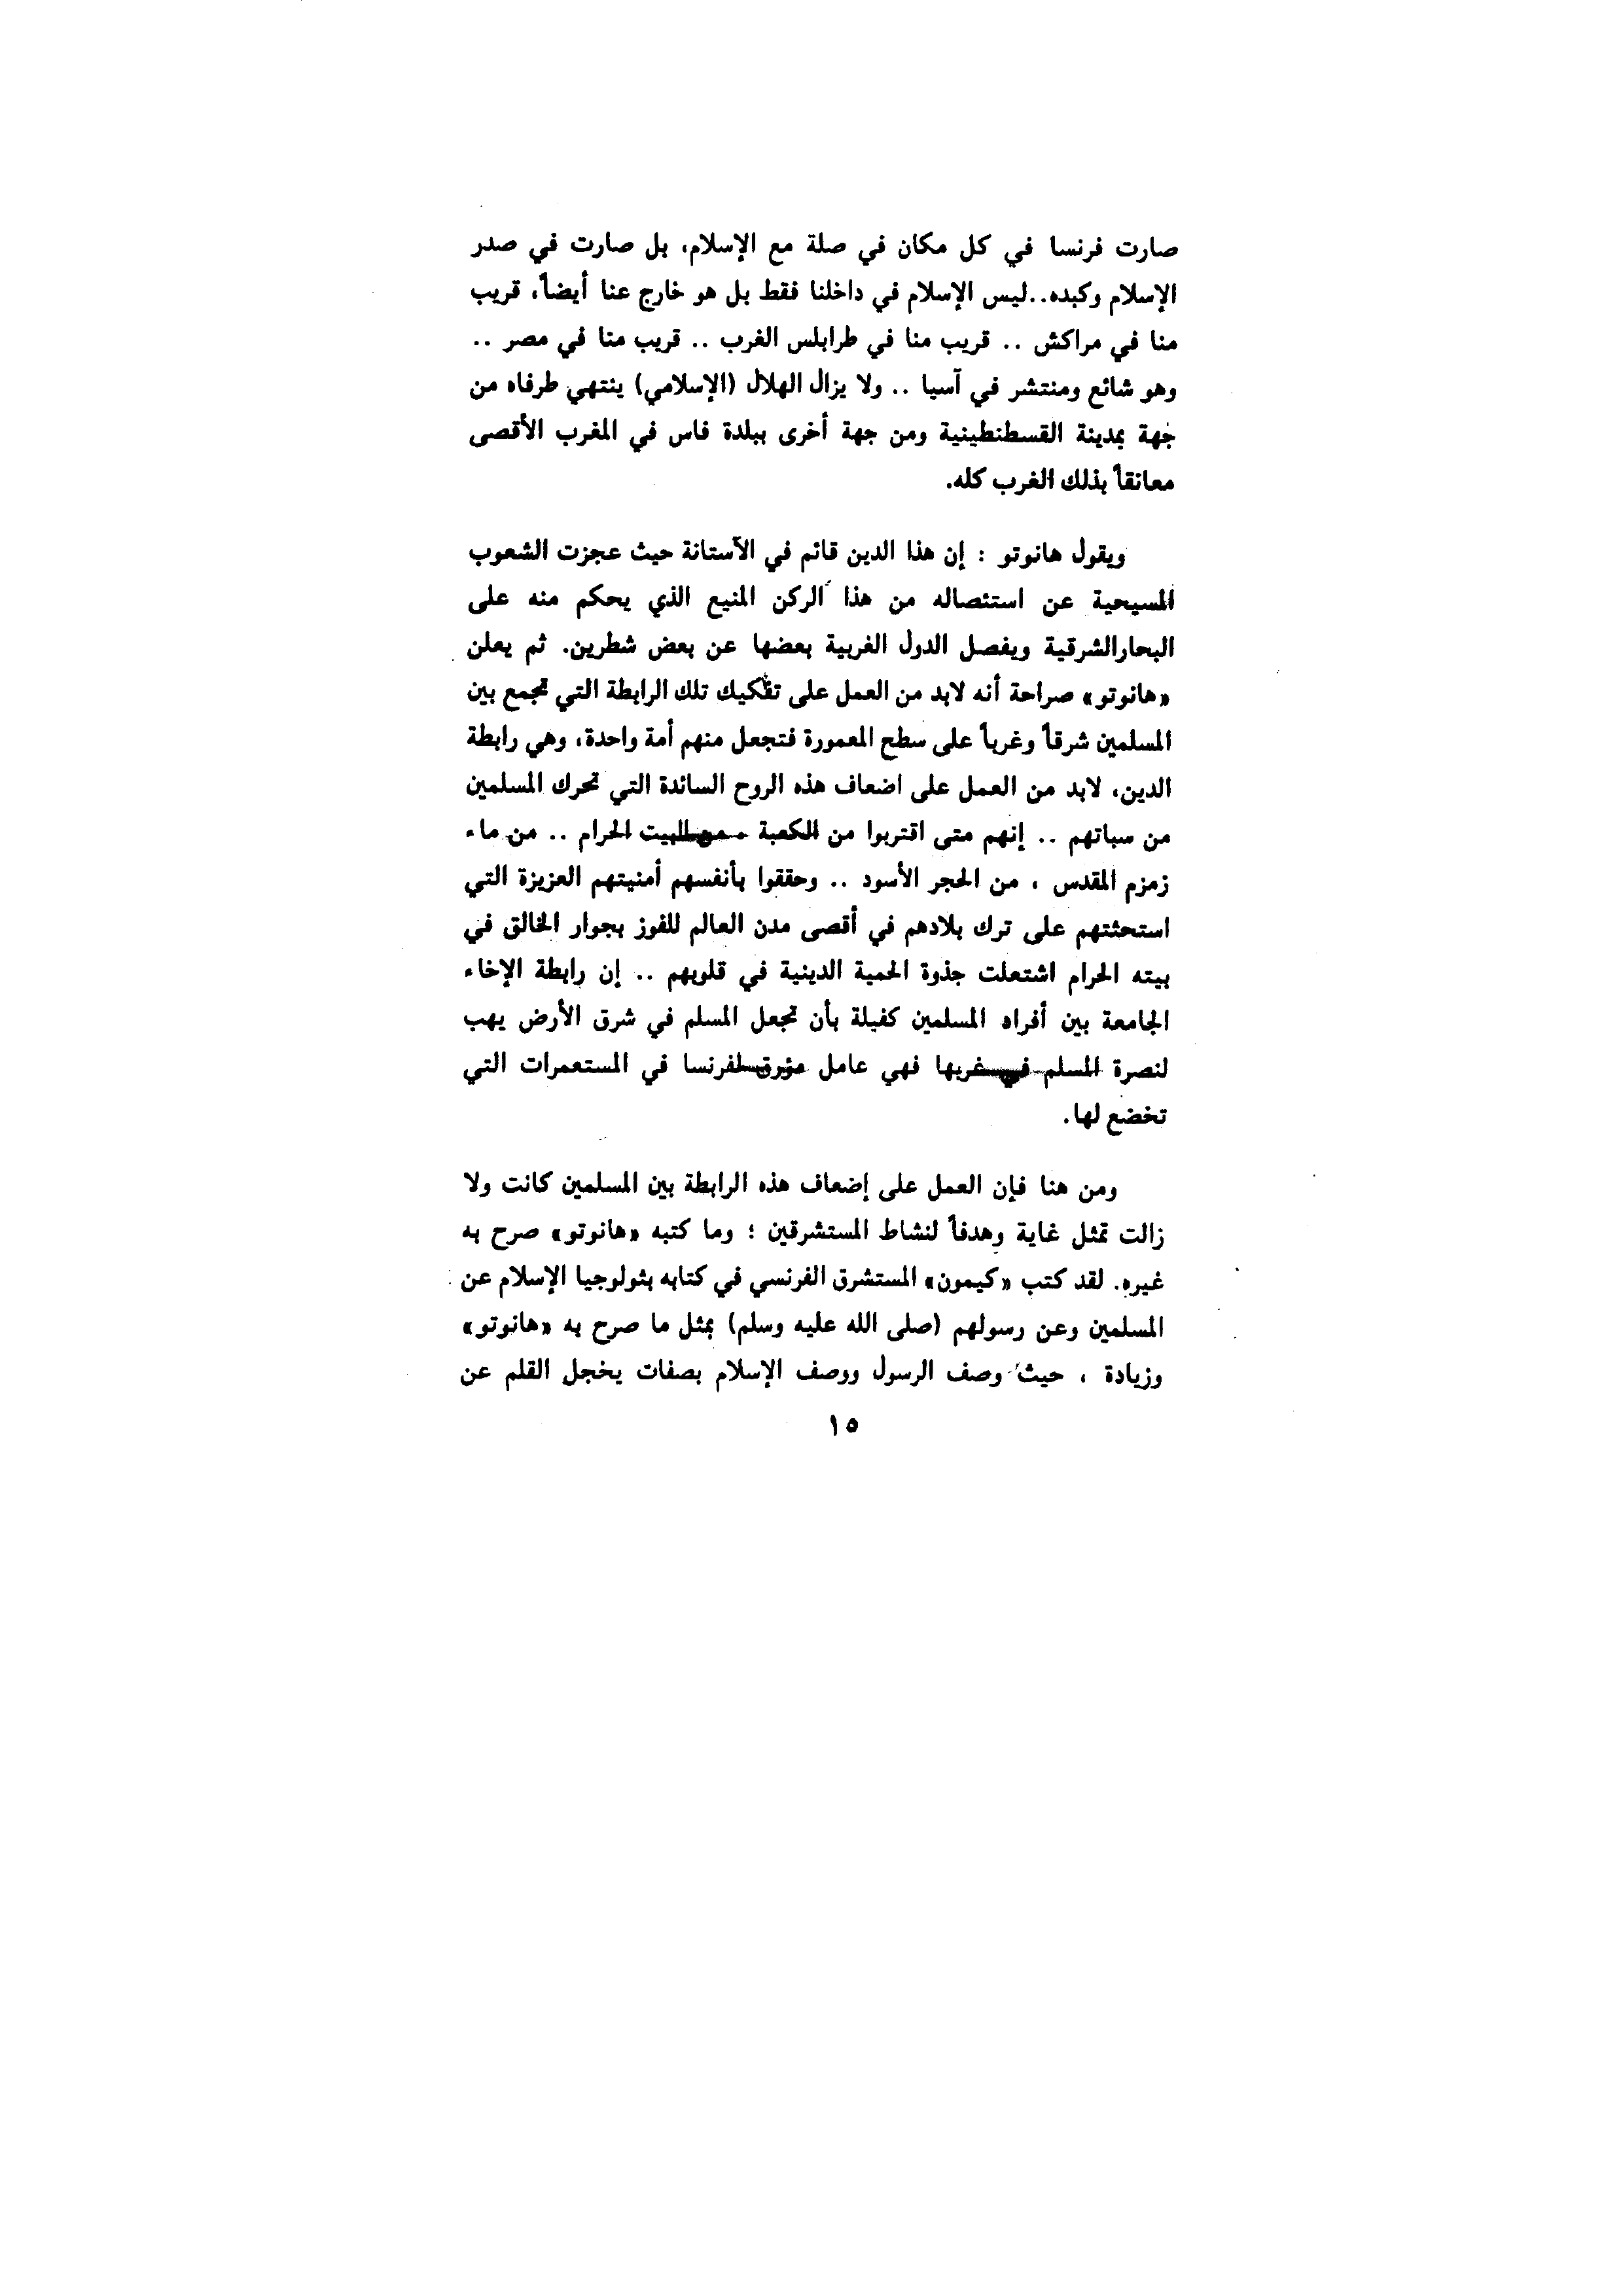 صارت فرنسا في كل مكان في صلة مع الإسلام، بل صارت في صدر
الإسلام وكبده..ليس الإسلام في داخلنا فقط بل هو خارج عنا أيضاً، قريب
منا في مراكش .. قريب منا في طرابلس الغرب .. قريب منا في مصر ..
وهو شائع ومنتشر في آسيا .. ولا يزال الهلال (الإسلامي) ينتهي طرفاه من
جهة بمدينة القسطنطينية ومن جهة أخرى ببلدة فاس في المغرب الأقصى
معانقاً بذلك الغرب كله.
ويقول هانوتو : إن هذا الدين قائم في الآستانة حيث عجزت الشعوب
المسيحية عن استئصاله من هذا الركن المنيع الذي يحكم منه على
البحارالشرقية ويفصل الدول الغربية بعضها عن بعض شطرين. ثم يعلن
«هانوتو» صراحة أنه لابد من العمل على تفكيك تلك الرابطة التي تجمع بين
المسلمين شرقاً وغرباً على سطح المعمورة فتجعل منهم أمة واحدة، وهي رابطة
الدين، لابد من العمل على اضعاف هذه الروح السائدة التي تحرك المسلمين
من سباتهم .. إنهم متى اقتربوا من الكعبة . من البيت الحرام .. من ماء
زمزم المقدس ، من الحجر الأسود .. وحققوا بأنفسهم أمنيتهم العزيزة التي
استحثتهم على ترك بلادهم في أقصى مدن العالم للفوز بجوار الخالق في
بيته الحرام اشتعلت جذوة الحمية الدينية في قلوبهم .. إن رابطة الإخاء
الجامعة بين أفراد المسلمين كفيلة بأن تجعل المسلم في شرق الأرض يهب
لنصرة المسلم في غربها فهي عامل مؤرق لفرنسا في المستعمرات التي
تخضع لها.
ومن هنا فإن العمل على إضعاف هذه الرابطة بين المسلمين كانت ولا
زالت تمثل غاية وهدفاً لنشاط المستشرقين ؛ وما كتبه «هانوتو» صرح به
غيره. لقد كتب «كيمون» المستشرق الفرنسي في كتابه بثولوجيا الإسلام عن
المسلمين وعن رسولهم (صلى الله عليه وسلم) بمثل ما صرح به «هانوتو»
وزيادة ، حيث وصف الرسول ووصف الإسلام بصفات يخجل القلم عن
١٥